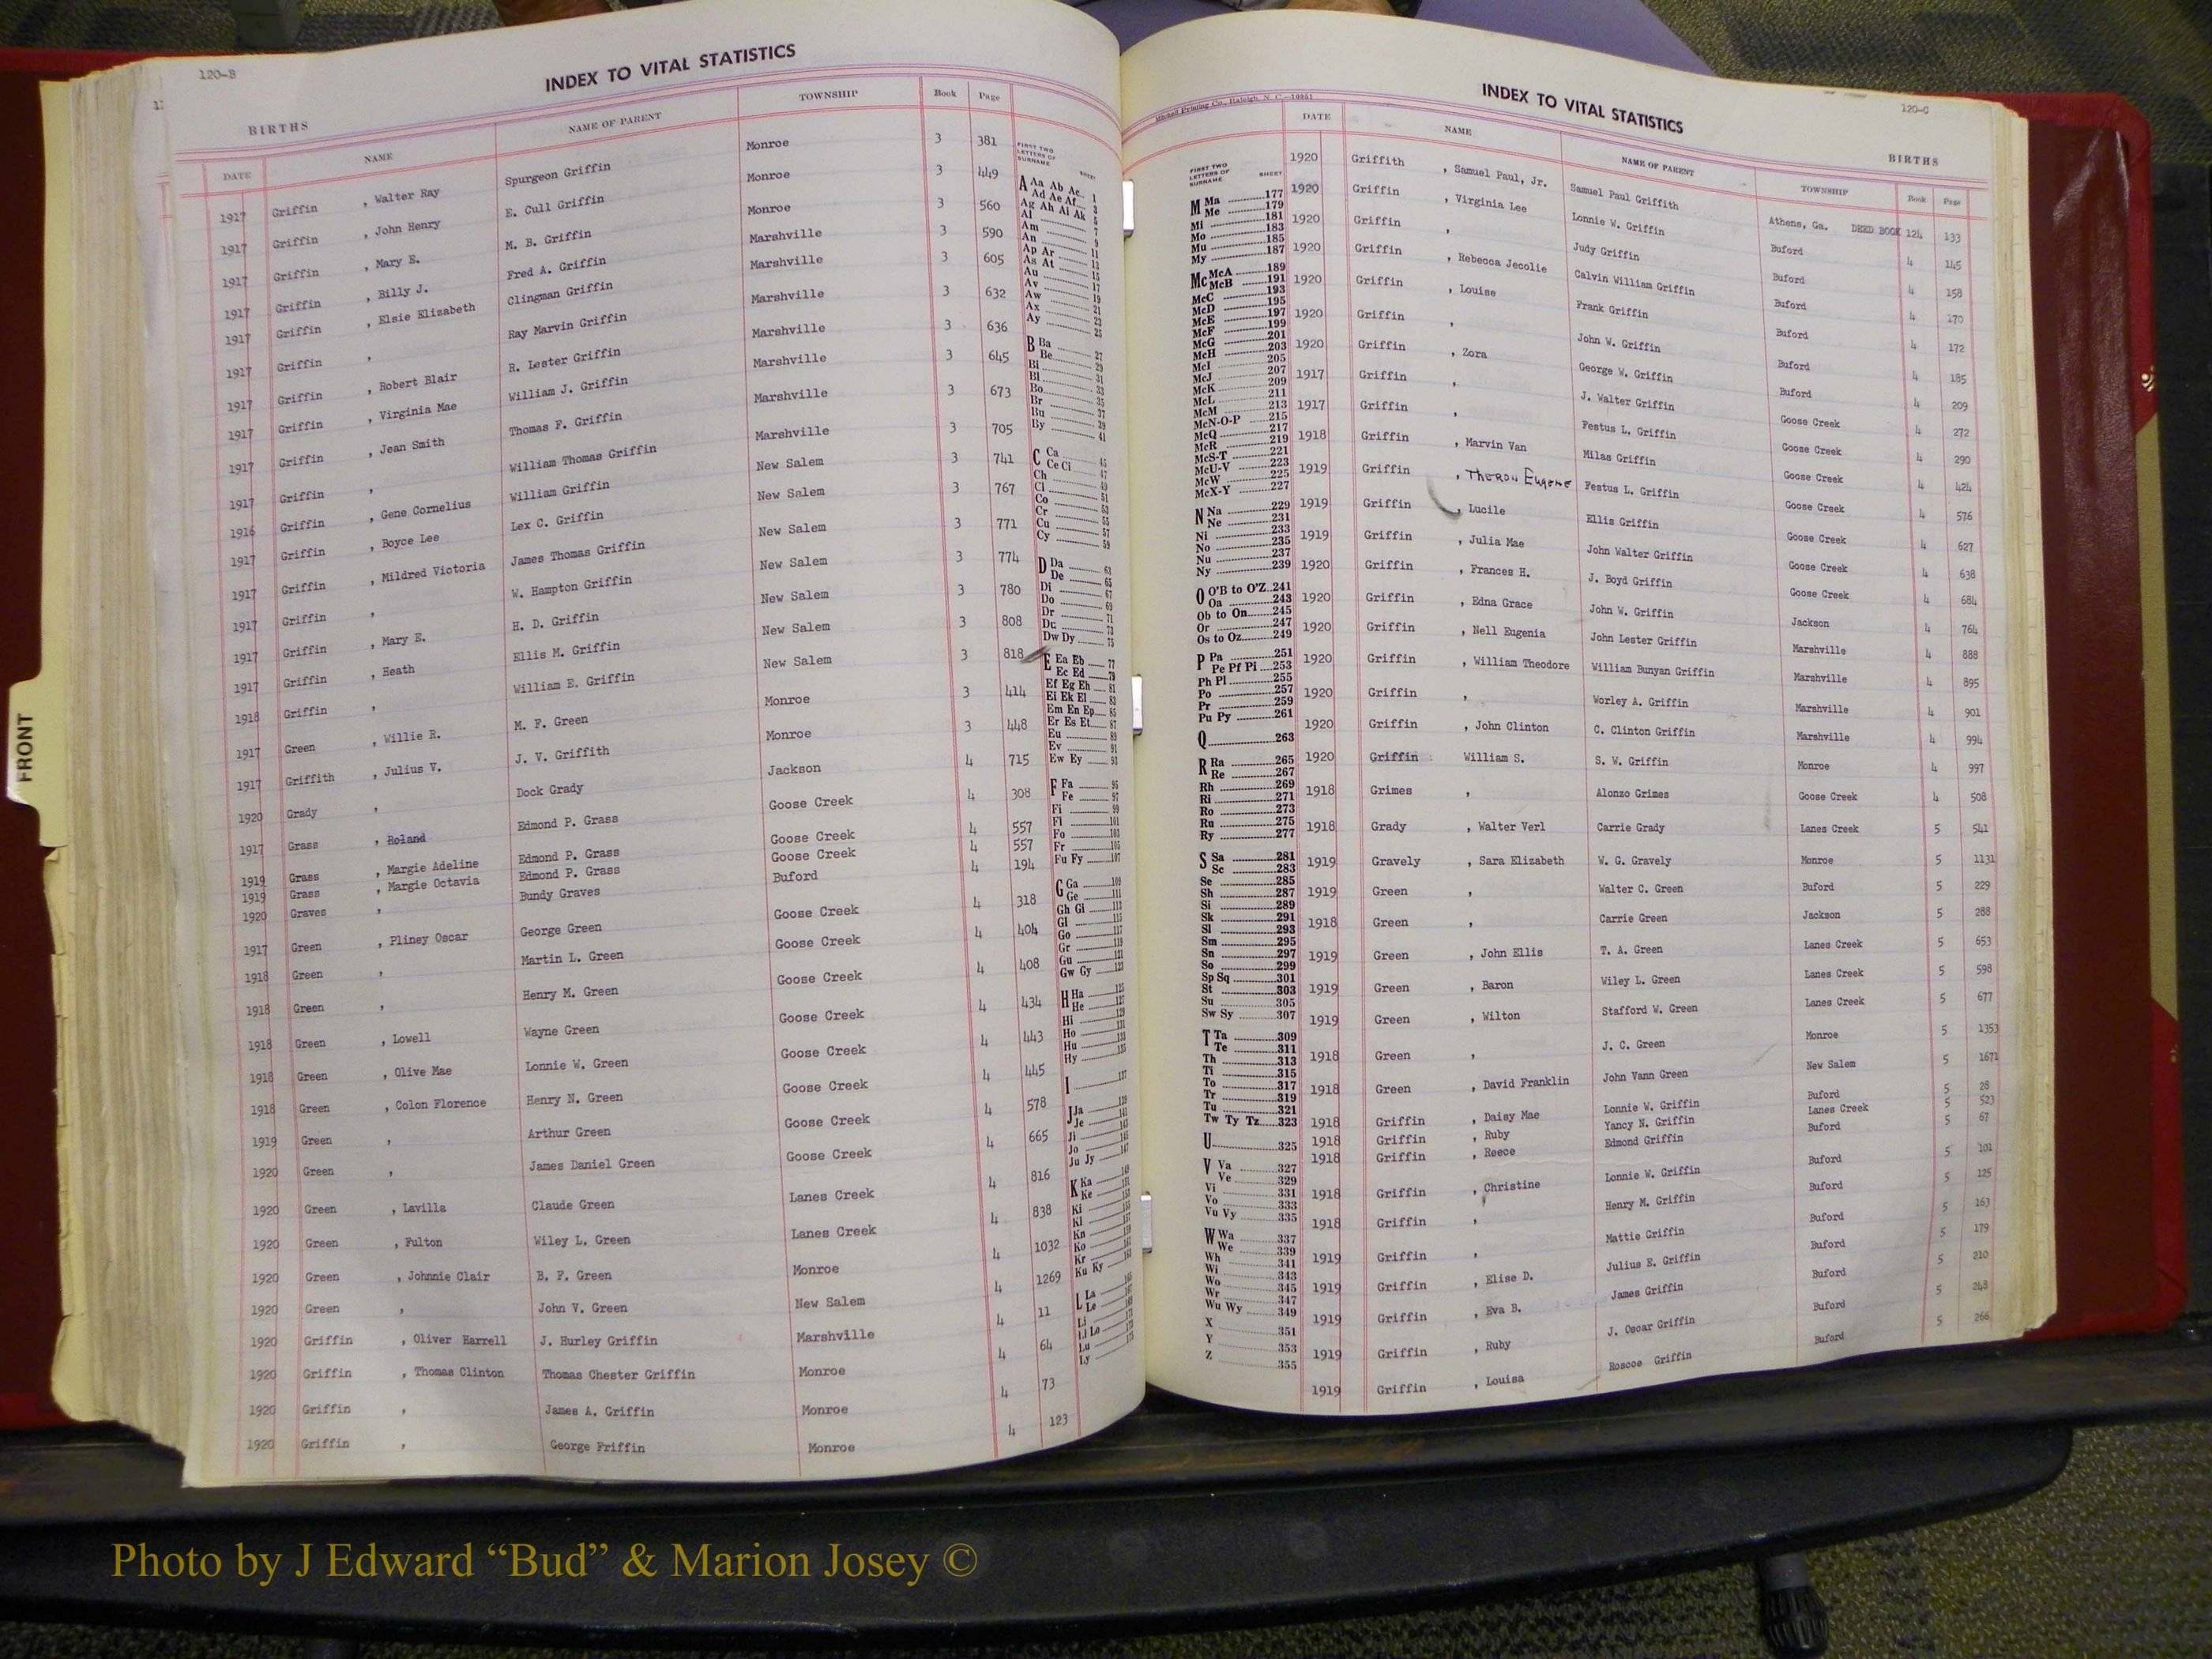 120-B
INDEX TO VITAL STATISTICS
BIRTHS
DATE NAME NAME OF PARENT TOWNSHIP Book Page
1917 Griffin , Walter Ray Spurgeon Griffin Monroe 3 381
1917 Griffin , John Henry E. Cull Griffin Monroe 3 449
1917 Griffin , Mary E. M. B. Griffin Monroe 3 560
1917 Griffin , Billy J. Fred A. Griffin Marshville 3 590
1917 Griffin , Elsie Elizabeth Clingman Griffin Marshville 3 605
1917 Griffin , Ray Marvin Griffin Marshville 3 632
1917 Griffin , Robert Blair R. Lester Griffin Marshville 3 636
1917 Griffin , Virginia Mae William J. Griffin Marshville 3 645
1917 Griffin , Jean Smith Thomas F. Griffin Marshville 3 673
1917 Griffin , William Thomas Griffin Marshville 3 705
1916 Griffin , Gene Cornelius William Griffin New Salem 3 741
1917 Griffin , Boyce Lee Lex C. Griffin New Salem 3 767
1917 Griffin , Mildred Victoria James Thomas Griffin New Salem 3 771
1917 Griffin , W. Hampton Griffin New Salem 3 774
1917 Griffin , Mary E. H. D. Griffin New Salem 3 780
1917 Griffin , Heath Ellis M. Griffin New Salem 3 808
1918 Griffin , William E. Griffin New Salem 3 818
1917 Green , Willie R. M. F. Green Monroe 3 414
1917 Griffith , Julius V. J. V. Griffith Monroe 3 448
1920 Grady , Dock Grady Jackson 4 715
1917 Grass , Roland Edmond P. Grass Goose Creek 4 308
1919 Grass , Margie Adeline Edmond P. Grass Goose Creek 4 557
1919 Grass , Margie Octavia Edmond P. Grass Goose Creek 4 557
1920 Graves , Bundy Graves Buford 4 194
1917 Green , Pliney Oscar George Green Goose Creek 4 318
1918 Green , Martin L. Green Goose Creek 4 404
1918 Green , Henry M. Green Goose Creek 4 408
1918 Green , Lowell Wayne Green Goose Creek 4 434
1918 Green , Olive Mae Lonnie W. Green Goose Creek 4 443
1918 Green , Colon Florence Henry N. Green Goose Creek 4 445
1919 Green , Arthur Green Goose Creek 4 578
1920 Green , James Daniel Green Goose Creek 4 665
1920 Green , Lavilla Claude Green Lanes Creek 4 816
1920 Green , Fulton Wiley L. Green Lanes Creek 4 838
1920 Green , Johnnie Clair B. F. Green Monroe 4 1032
1920 Green , John V. Green New Salem 4 1269
1920 Griffin , Oliver Harrell J. Hurley Griffin Marshville 4 11
1920 Griffin , Thomas Clinton Thomas Chester Griffin Monroe 4 64
1920 Griffin , James A. Griffin Monroe 4 73
1920 Griffin , George Friffin Monroe 4 123
FIRST TWO LETTERS OF SURNAME SHEET
A Aa Ab Ac 1
Ad Ae Af 3
Ag Ah Ai Ak 5
Al 7
Am 9
An 11
Ap Ar 13
As At 15
Au 17
Av 19
Aw 21
Ax 23
Ay 25
B Ba 27
Be 29
Bi 31
Bl 33
Bo 35
Br 37
Bu 39
By 41
C Ca 45
Ce Ci 47
Ch 49
Cl 51
Co 53
Cr 55
Cu 57
Cy 59
D Da 63
De 65
Di 67
Do 69
Dr 71
Du 73
Dw Dy 75
E Ea Eb 77
Ec Ed 79
Ef Eg Eh 81
Ei Ek El 83
Em En Ep 85
Er Es Et 87
Eu 89
Ev 91
Ew Ey 93
F Fa 95
Fe 97
Fi 99
Fl 101
Fo 103
Fr 105
Fu Fy 107
G Ga 109
Ge 111
Gh Gi 113
Gl 115
Go 117
Gr 119
Gu 121
Gw Gy 123
H Ha 125
He 127
Hi 129
Ho 131
Hu 133
Hy 135
I 137
J Ja
Je
Ji
Jo
Ju Jy
K Ka
Ke
Ki
Kl
Kn
Ko
Kr
Ku Ky
L La
Le
Li
Ll Lo
Lu
Ly
FRONT
Mitchell Printing Co., Raleigh, N. C.—10951
INDEX TO VITAL STATISTICS
120-C
BIRTHS
DATE NAME NAME OF PARENT TOWNSHIP Book Page
FIRST TWO LETTERS OF SURNAME SHEET
M Ma 177
Me 179
Mi 181
Mo 183
Mu 185
My 187
Mc McA 189
McB 191
McC 193
McD 195
McE 197
McF 199
McG 201
McH 203
McI 205
McJ 207
McK 209
McL 211
McM 213
McN-O-P 215
McQ 217
McR 219
McS-T 221
McU-V 223
McW 225
McX-Y 227
N Na 229
Ne 231
Ni 233
No 235
Nu 237
Ny 239
O O'B to O'Z 241
Oa 243
Ob to On 245
Or 247
Os to Oz 249
P Pa 251
Pe Pf Pi 253
Ph Pl 255
Po 257
Pr 259
Pu Py 261
Q 263
R Ra 265
Re 267
Rh 269
Ri 271
Ro 273
Ru 275
Ry 277
S Sa 281
Sc 283
Se 285
Sh 287
Si 289
Sk 291
Sl 293
Sm 295
Sn 297
So 299
Sp Sq 301
St 303
Su 305
Sw Sy 307
T Ta 309
Te 311
Th 313
Ti 315
To 317
Tr 319
Tu 321
Tw Ty Tz 323
U 325
V Va 327
Ve 329
Vi 331
Vo 333
Vu Vy 335
W Wa 337
We 339
Wh 341
Wi 343
Wo 345
Wr 347
Wu Wy 349
X 351
Y 353
Z 355
1920 Griffith , Samuel Paul, Jr. Samuel Paul Griffith Athens, Ga. DEED BOOK 124 133
1920 Griffin , Virginia Lee Lonnie W. Griffin Buford 4 145
1920 Griffin , Judy Griffin Buford 4 158
1920 Griffin , Rebecca Jecolie Calvin William Griffin Buford 4 170
1920 Griffin , Louise Frank Griffin Buford 4 172
1920 Griffin , John W. Griffin Buford 4 185
1920 Griffin , Zora George W. Griffin Buford 4 209
1917 Griffin , J. Walter Griffin Goose Creek 4 272
1917 Griffin , Festus L. Griffin Goose Creek 4 290
1918 Griffin , Marvin Van Milas Griffin Goose Creek 4 424
1919 Griffin , Theron Eugene Festus L. Griffin Goose Creek 4 576
1919 Griffin , Lucile Ellis Griffin Goose Creek 4 627
1919 Griffin , Julia Mae John Walter Griffin Goose Creek 4 638
1920 Griffin , Frances H. J. Boyd Griffin Goose Creek 4 684
1920 Griffin , Edna Grace John W. Griffin Jackson 4 764
1920 Griffin , Nell Eugenia John Lester Griffin Marshville 4 888
1920 Griffin , William Theodore William Bunyan Griffin Marshville 4 895
1920 Griffin , Worley A. Griffin Marshville 4 901
1920 Griffin , John Clinton C. Clinton Griffin Marshville 4 994
1920 Griffin William S. S. W. Griffin Monroe 4 997
1918 Grimes , Alonzo Grimes Goose Creek 4 508
1918 Grady , Walter Verl Carrie Grady Lanes Creek 5 541
1919 Gravely , Sara Elizabeth W. G. Gravely Monroe 5 1131
1919 Green , Walter C. Green Buford 5 229
1918 Green , Carrie Green Jackson 5 288
1919 Green , John Ellis T. A. Green Lanes Creek 5 653
1919 Green , Baron Wiley L. Green Lanes Creek 5 598
1919 Green , Wilton Stafford W. Green Lanes Creek 5 677
1918 Green , J. C. Green Monroe 5 1353
1918 Green , David Franklin John Vann Green New Salem 5 1671
1918 Griffin , Daisy Mae Lonnie W. Griffin Buford 5 28
1918 Griffin , Ruby Yancy N. Griffin Lanes Creek 5 523
1918 Griffin , Reece Edmond Griffin Buford 5 67
1918 Griffin , Christine Lonnie W. Griffin Buford 5 101
1918 Griffin , Henry M. Griffin Buford 5 125
1919 Griffin , Mattie Griffin Buford 5 163
1919 Griffin , Elise D. Julius E. Griffin Buford 5 179
1919 Griffin , Eva B. James Griffin Buford 5 210
1919 Griffin , Ruby J. Oscar Griffin Buford 5 248
1919 Griffin , Louisa Roscoe Griffin Buford 5 266
Photo by J Edward “Bud” & Marion Josey ©